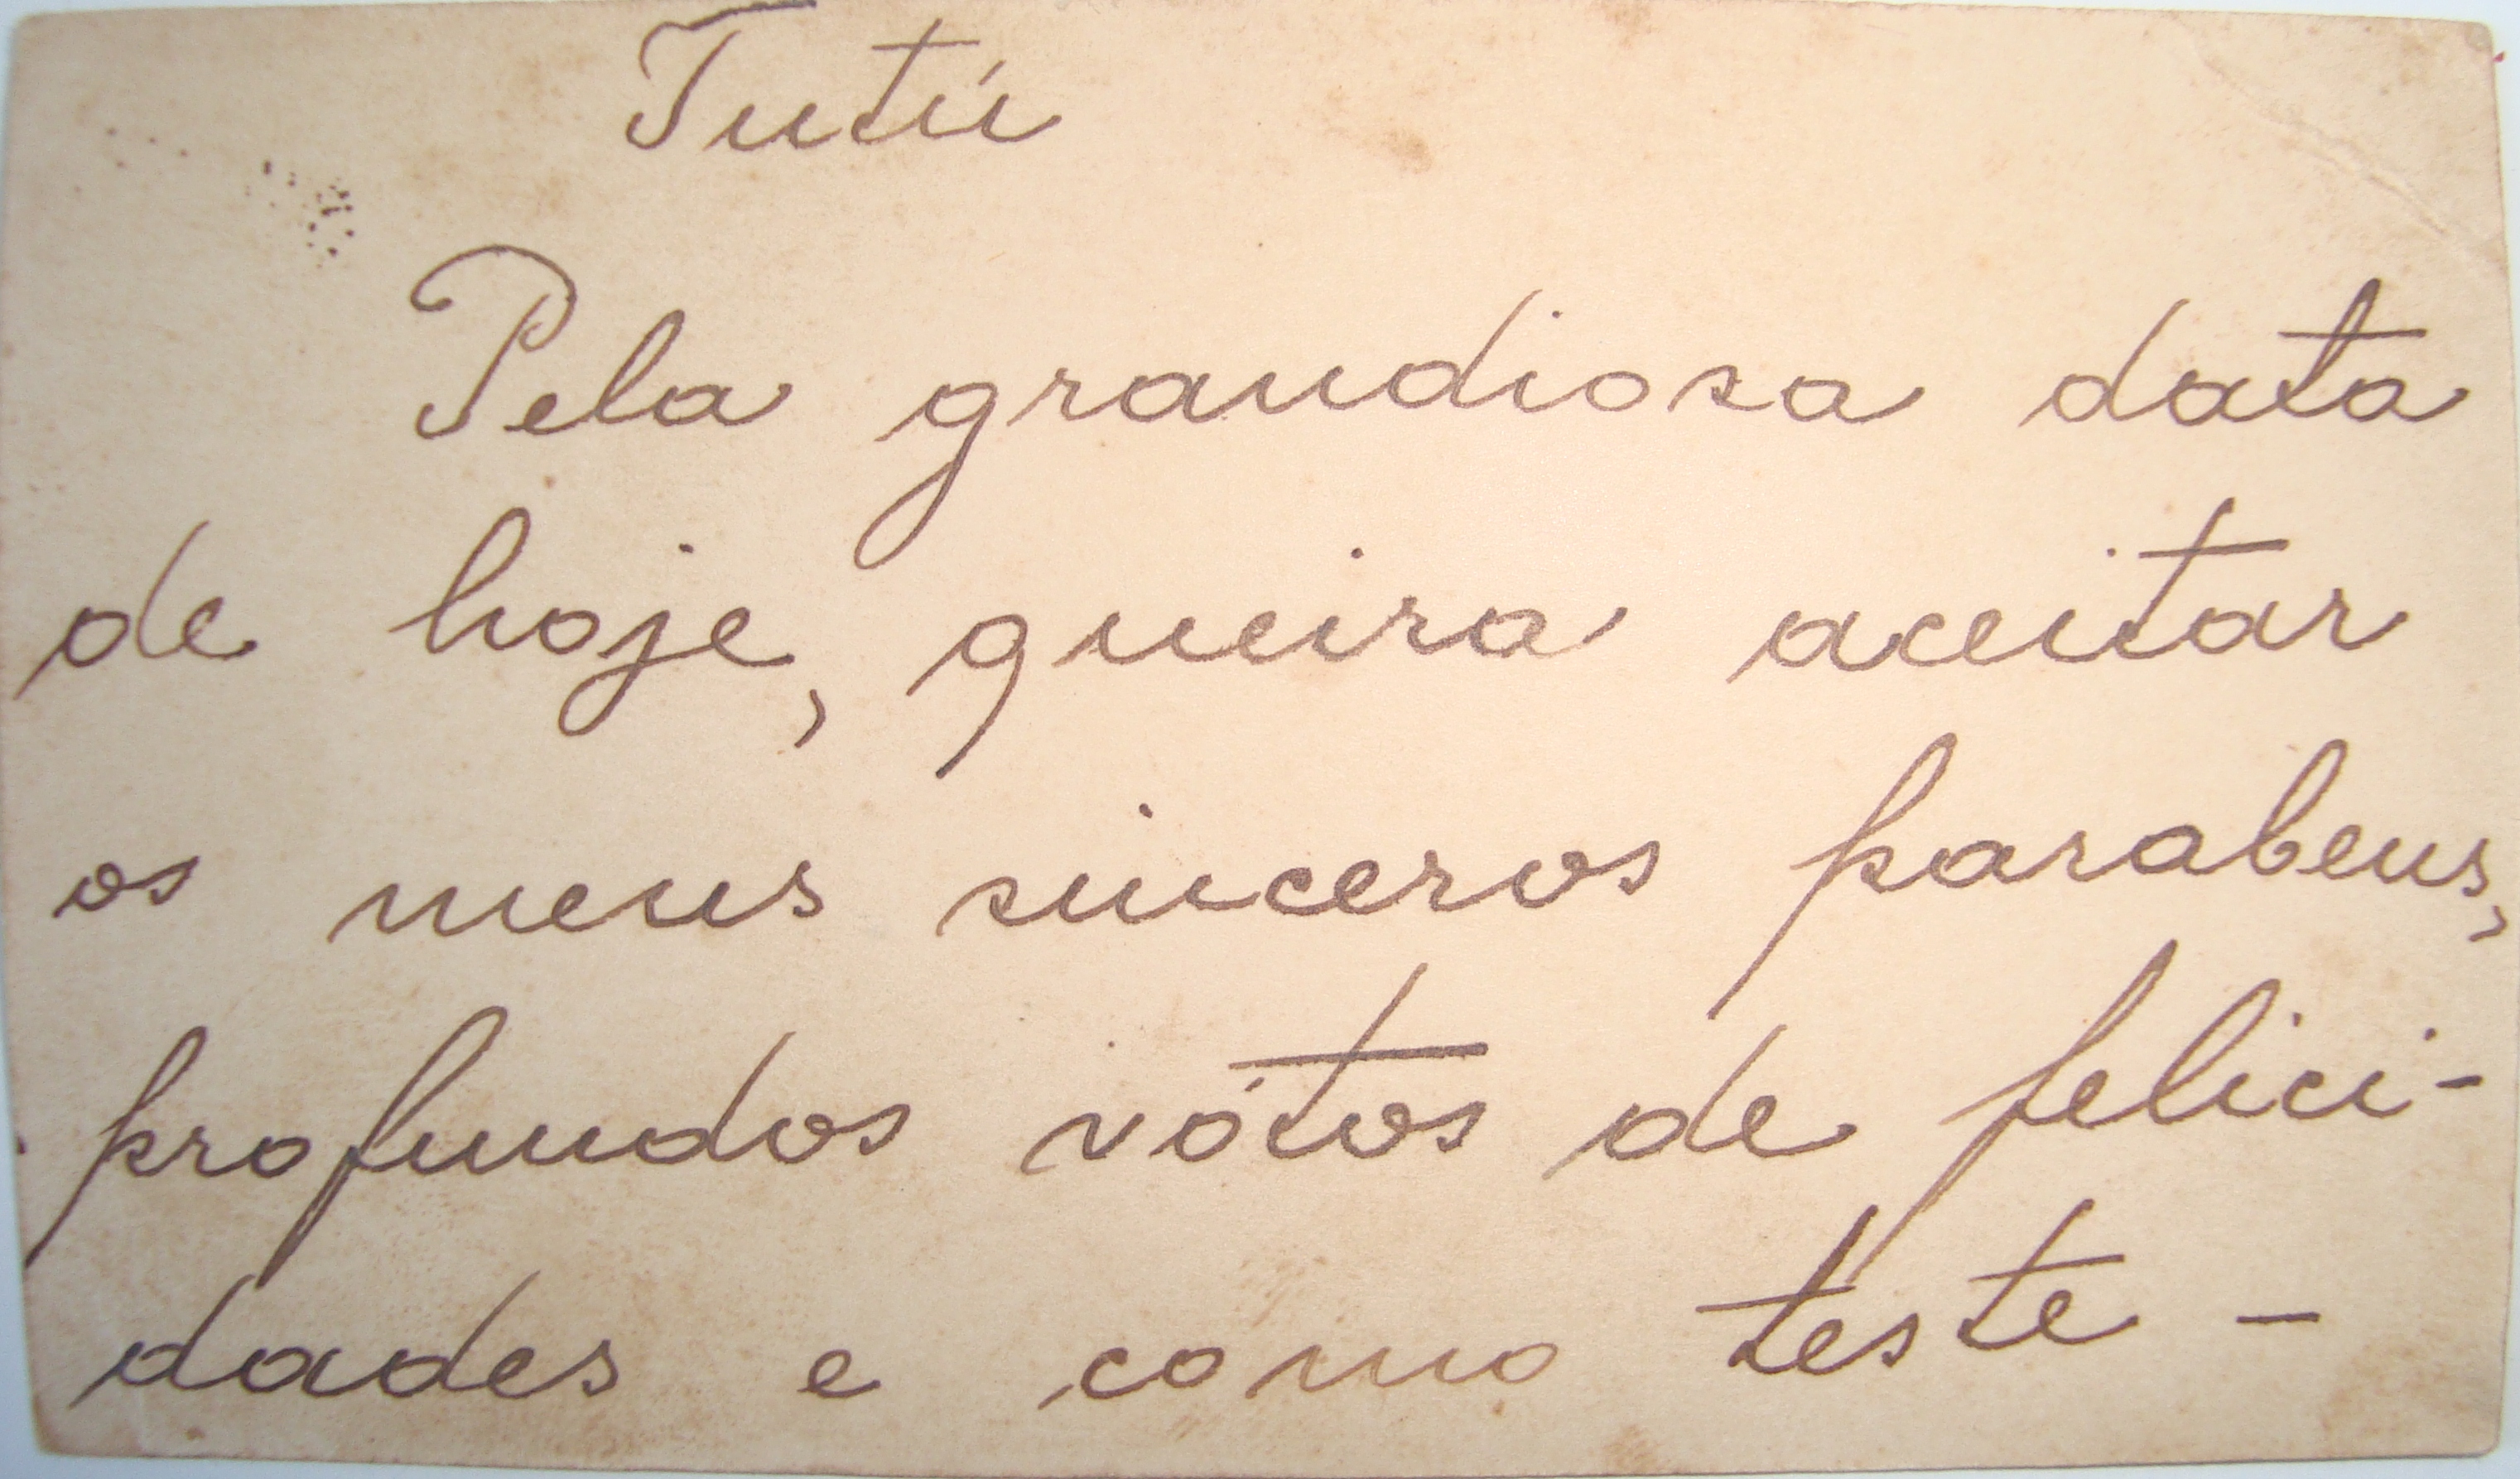 Tutú
Pela grandiosa data
de hoje, queira aceitar
os meus sinceros parabens,
profundos vótos de felici-
dades e como teste-